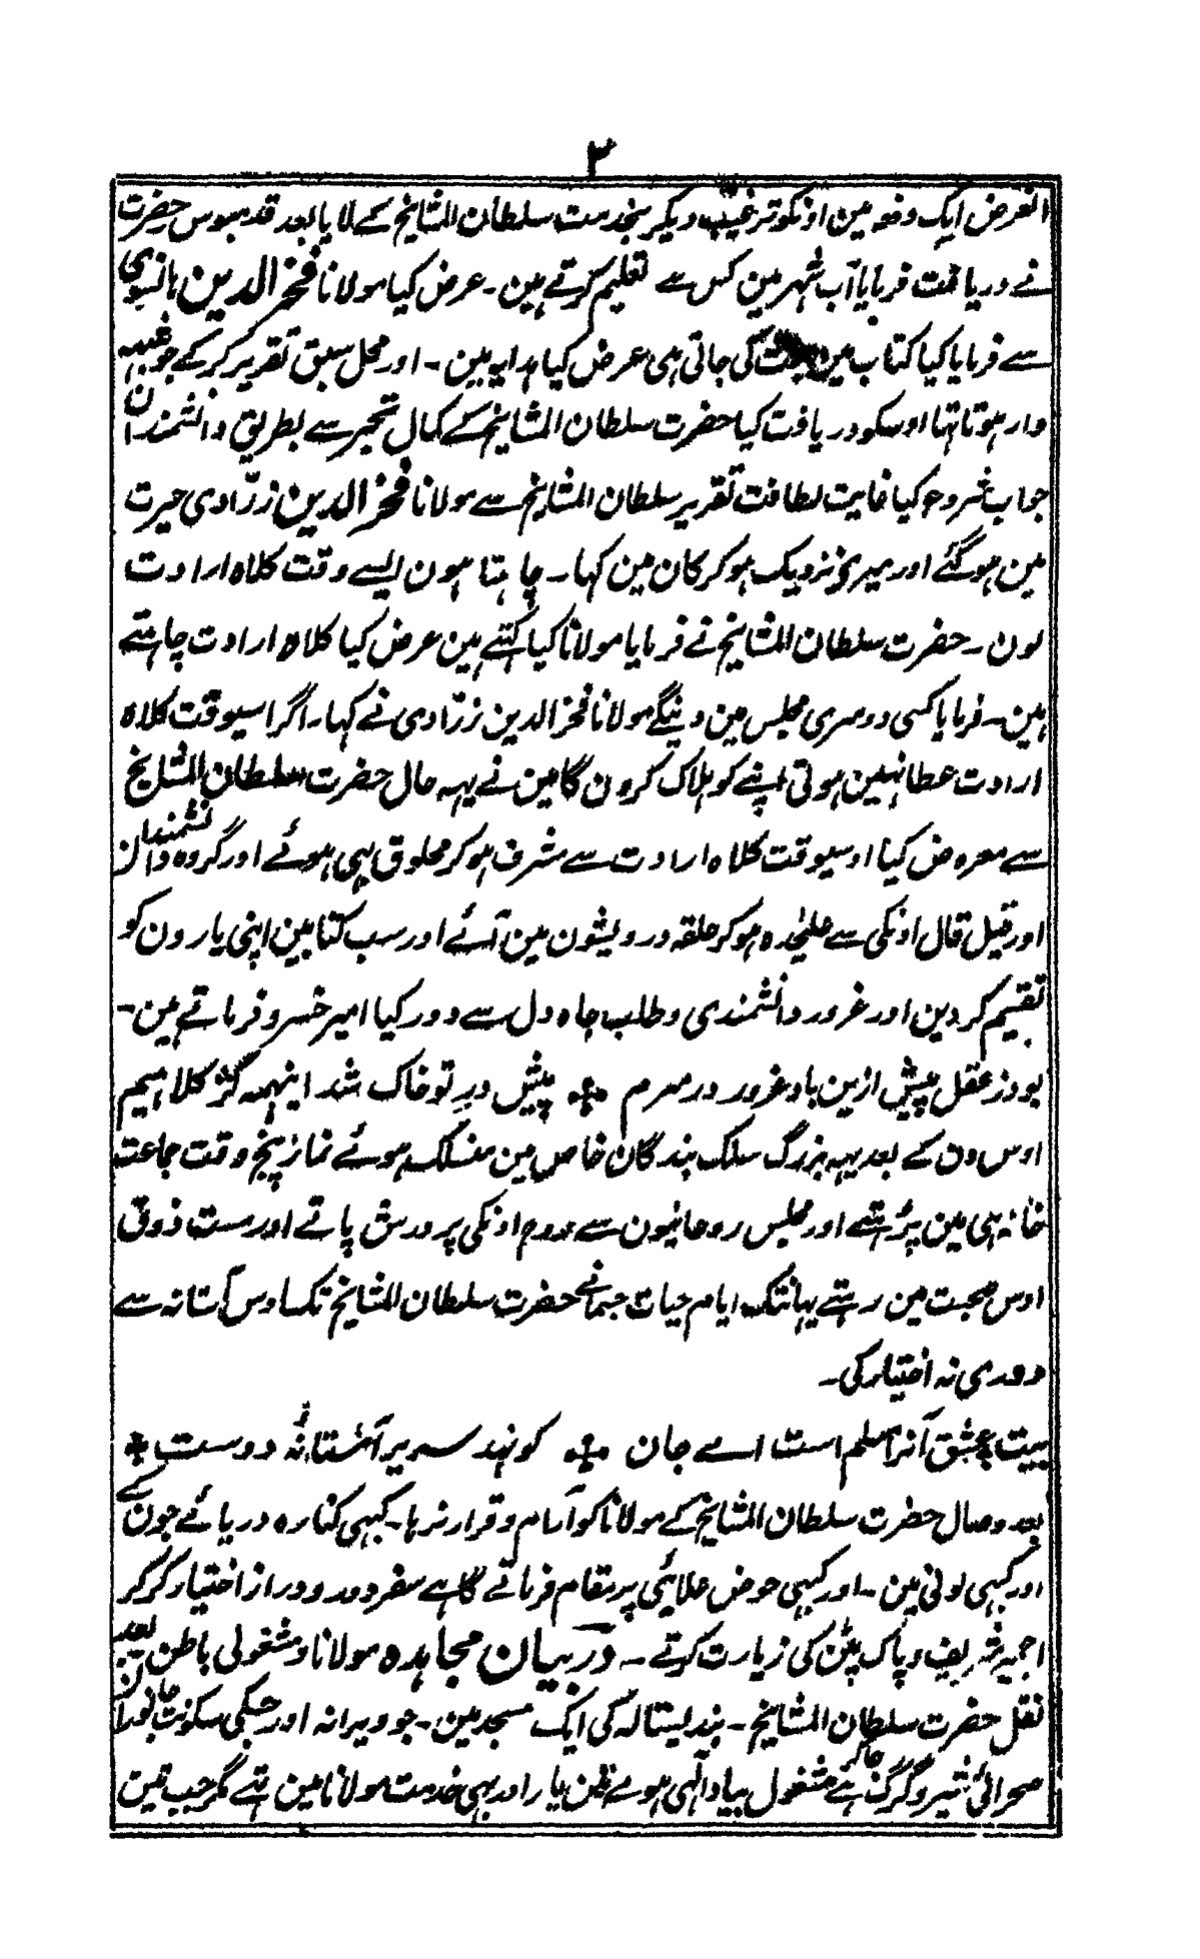 ۳
الغرض ایک دفعہ مین اونکو ترغیب دیکر بخدمت سلطان المشایخ کے لایا بعد قدمبوس حضرت
نے دریافت فرمایا آپ شہر مین کس سے تعلیم کرتے ہین ۔ عرض کیا مولانا فخر الدین ہانسوی
سے فرمایا کیا کتاب مین بحث کی جاتی ہی عرض کیا ہدایہ مین ۔ اور محل سبق تقریر کرکے جو شبہہ
وار ہوتا تہا اوسکو دریافت کیا حضرت سلطان المشایخ کے کمال تبحر سے بطریق دانشمندان
جواب شروع کیا غایت لطافت تقریر سلطان المشایخ سے مولانا فخر الدین زرّادی حیرت
مین ہو گئے اور میری نزدیک ہو کر کان مین کہا ۔ چاہتا ہون ایسے وقت کلاہ ارادت
لون ۔ حضرت سلطان المشایخ نے فرمایا مولانا کیا کہتے ہین عرض کیا کلاہ ارادت چاہتے
ہین ۔ فرمایا کسی دوسری مجلس مین دینگے مولانا فخر الدین زرّادی نے کہا ۔ اگر اسیوقت کلاہ
ارادت عطا نہین ہوتی اپنے کو ہلاک کرون گا مین نے یہہ حال حضرت سلطان المشایخ
سے معروض کیا اوسیوقت کلاہ ارادت سے مشرف ہو کر محلوق بہی ہوئے اور گروہ دانشمندان
اور قیل قال اونکی سے علیحدہ ہو کر حلقہ درویشون مین آئے اور سب کتابین اپنی یارون کو
تقسیم کر دین اور غرور دانشمندی و طلب جاہ دل سے دور کیا امیر خسرو فرماتے ہین ۔
بود ز عقل پیش ازین باد غرور در سرم ٭ پیش درِ تو خاک شد اینہمہ کژ کلاہیم
اوس دن کے بعد یہہ بزرگ سلک بندگان خاص مین منسلک ہوئے نماز پنج وقت جماعت
خانہ ہی مین پڑہتے اور مجلس روحانیون سے روح اونکی پرورش پاتے اور مست ذوق
اوس صحبت مین رہتے یہانتک ایام حیات حضرت سلطان المشایخ تک اوس آستانہ سے
دوری نہ اختیار کی ۔
بیت عشق آنرا مسلم است اے جان ٭ کو نہد سر بر آستانہ دوست ٭
بعد وصال حضرت سلطان المشایخ کے مولانا کو آرام و قرار نرہا ۔ کبہی کنارہ دریائے جون کے
اور کبہی لونی مین ۔ اور کبہی حوض علائی پر مقام فرماتے گاہے سفر دور دراز اختیار کر کر
اجمیر شریف و پاک پٹن کی زیارت کرتے ۔ در بیان مجاہدہ مولانا و مشغولی باطن بعد
نقل حضرت سلطان المشایخ ۔ بند بستالہ کی ایک مسجد مین ۔ جو ویرانہ اور جنگل سکونت جانوران
صحرائی شیر و گرگ جائے مشغول بیاد الہی ہوے تین یار اور بہی خدمت مولانا مین تہے مگر جب تین